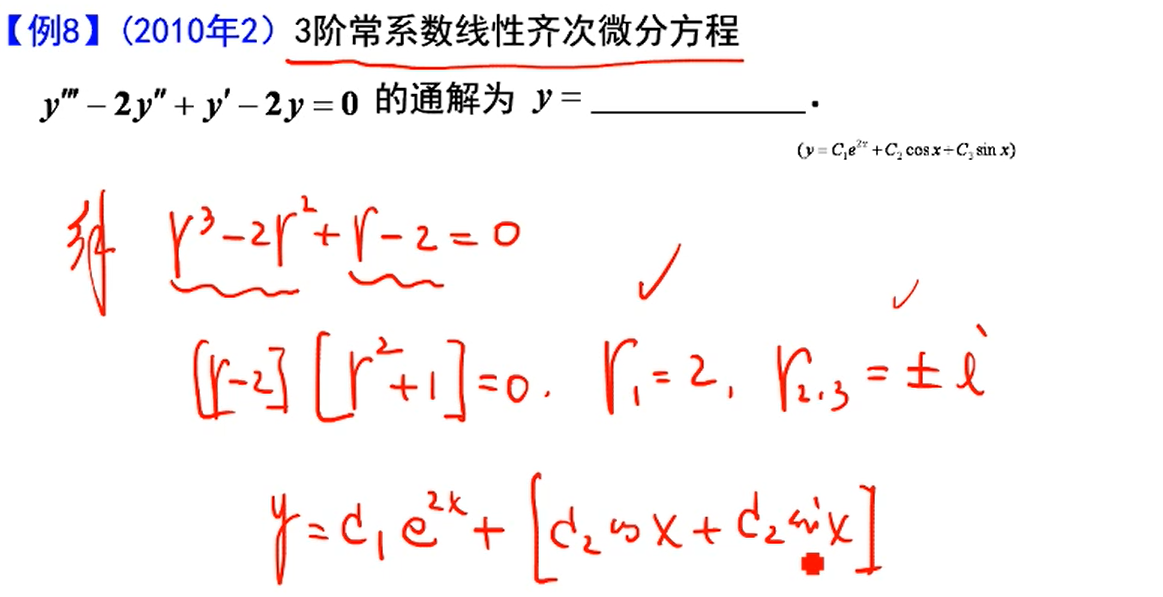 【例8】(2010年2) 3阶常系数线性齐次微分方程
y''' − 2y'' + y' − 2y = 0 的通解为 y = ____________.
(y = C₁e²ˣ + C₂ cos x + C₃ sin x)
解 r³ − 2r² + r − 2 = 0
[r−2] [r² + 1] = 0. r₁ = 2, r₂,₃ = ± i
y = C₁ e²ˣ + [C₂ cos x + C₂ sin x]